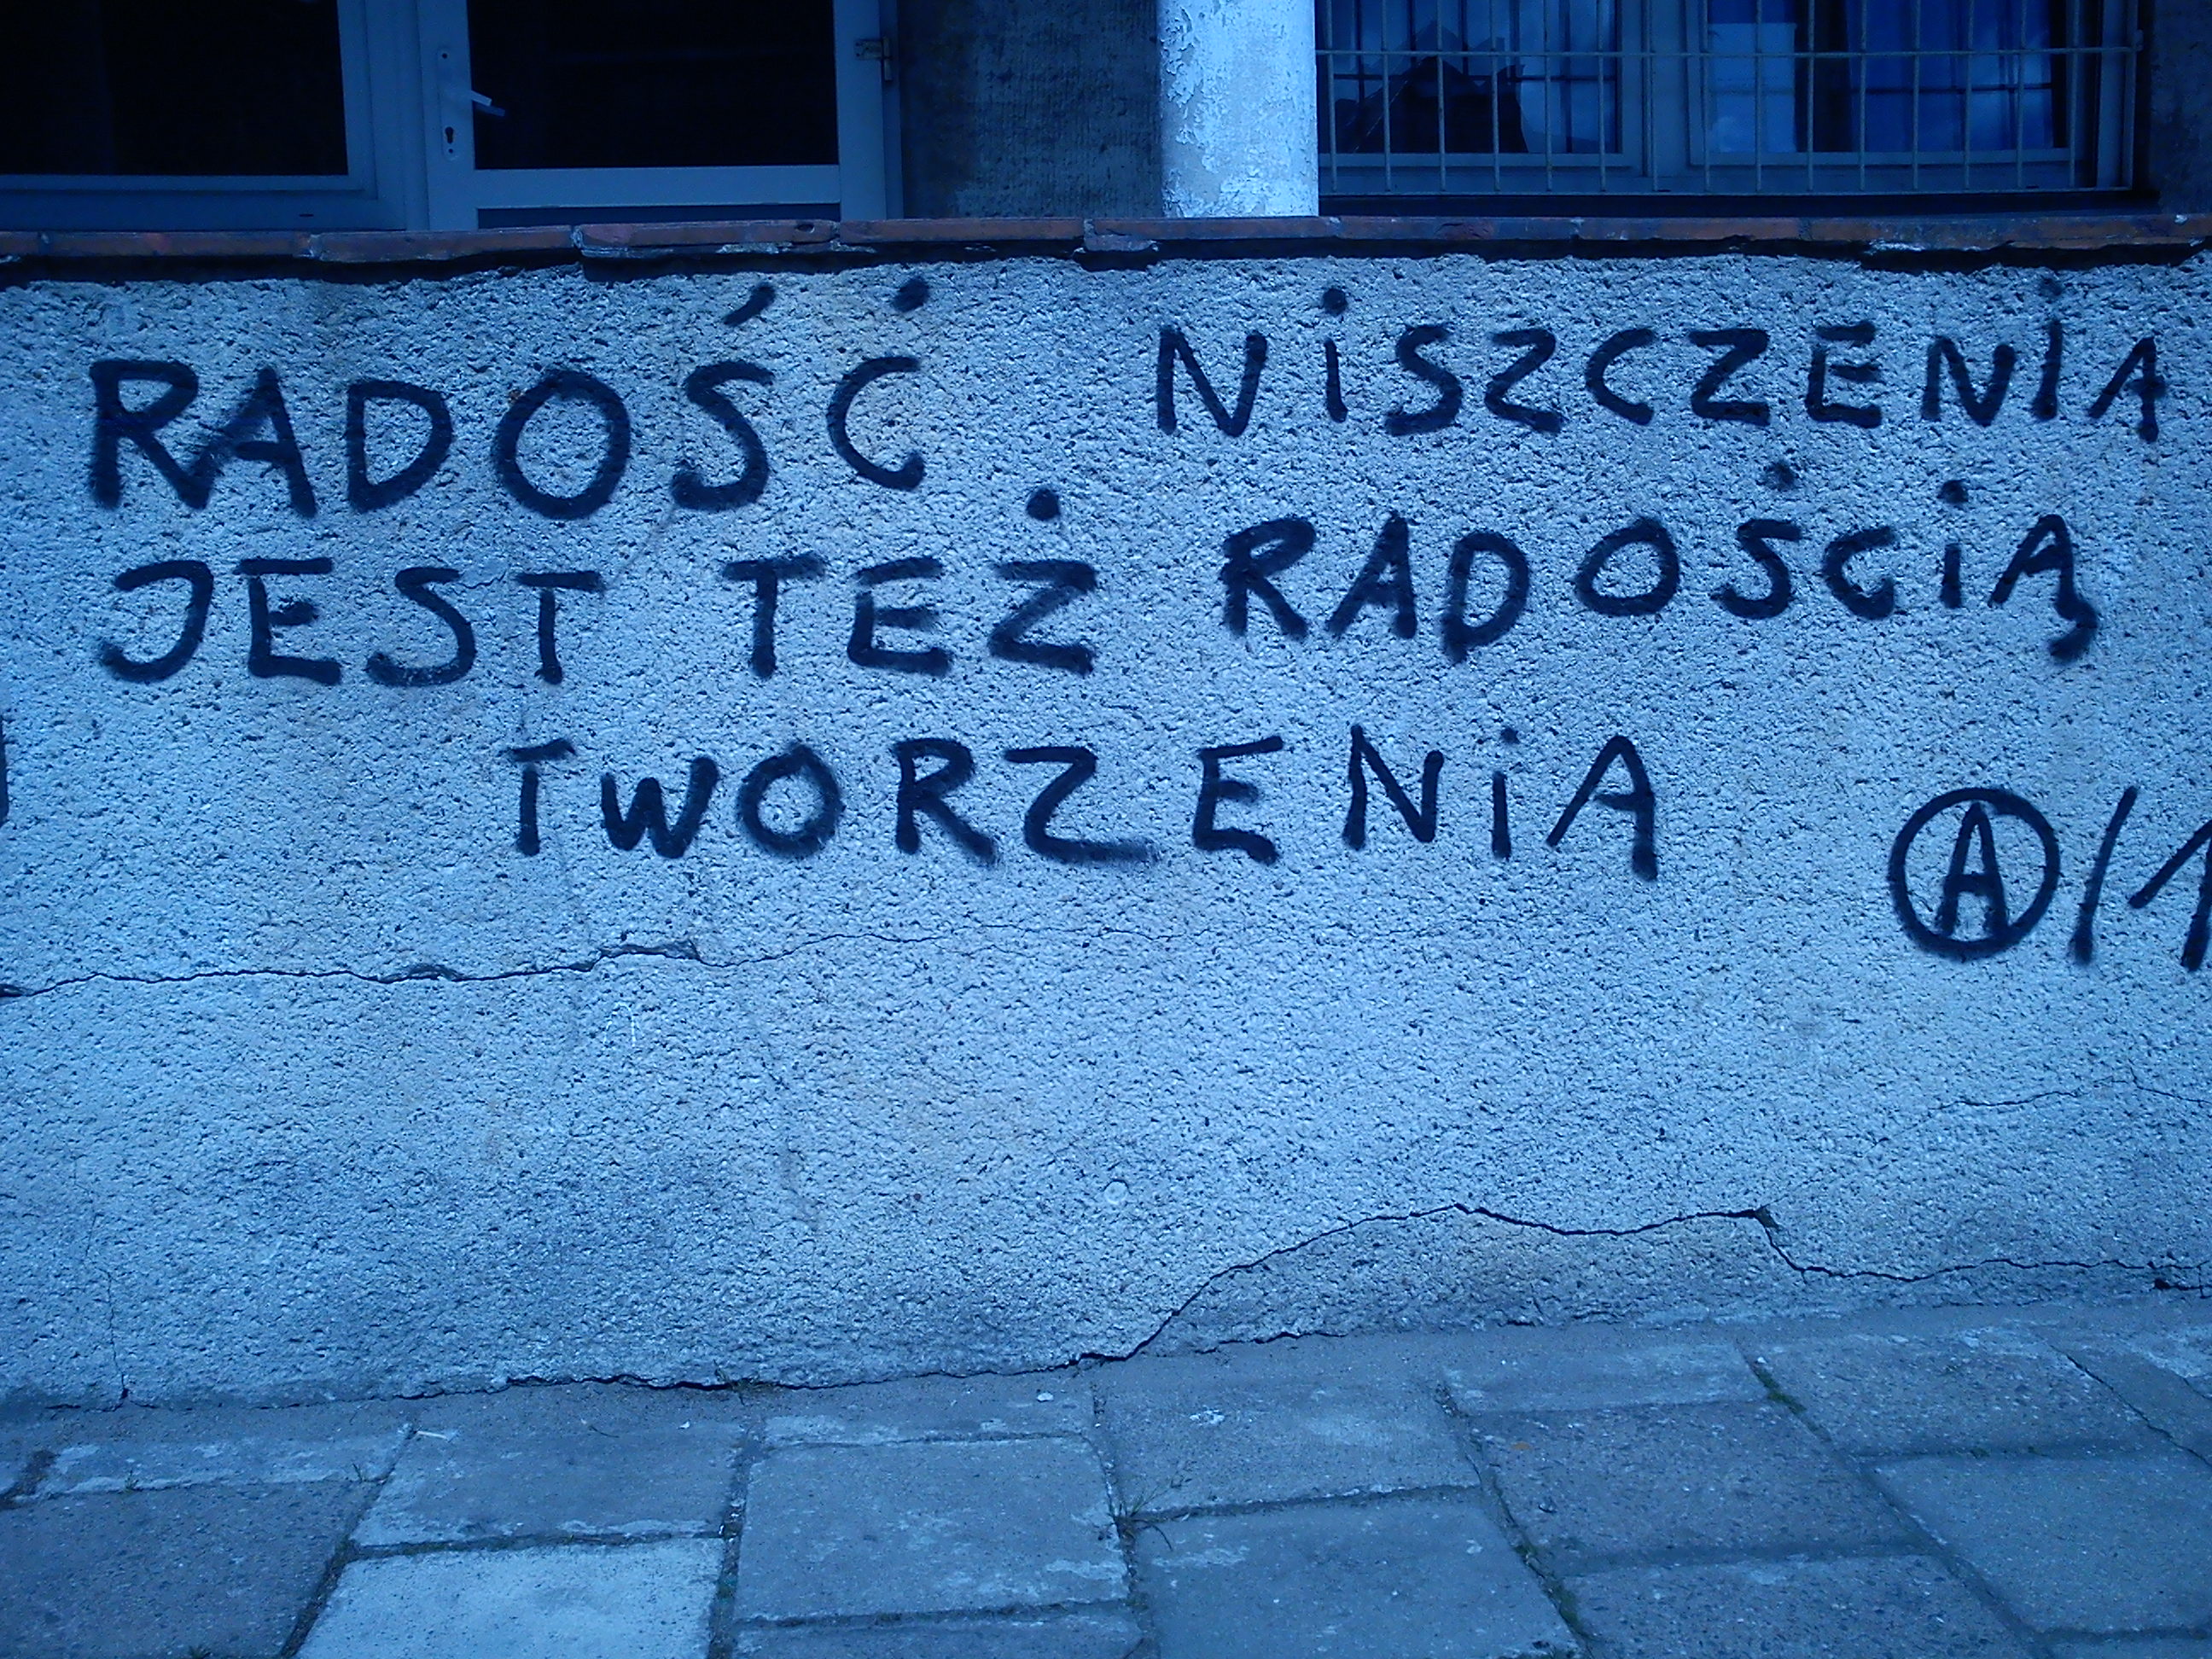 RADOŚĆ NiSZCZENiA
JEST TEŻ RADOŚCiĄ
TWORZENiA
Ⓐ/1